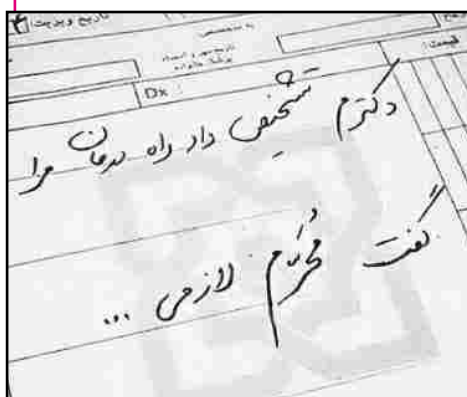 تاریخ ویزیت:
قیمت:
Dx:
دکترم تشخیص داد راه درمان مرا
گفت مُحَرَّم لازمی ...